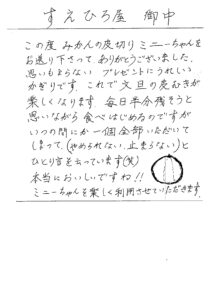 すえひろ屋 御中
この度 みかんの皮切り ミニーちゃんを
お送り下さって、ありがとうございました。
思いもよらない プレゼントにうれしい
かぎりです。これで文旦の皮むきが
楽しくなります 毎日半分残そうと
思いながら 食べはじめるのですが
いつの間にか一個全部いただいて
しまって、(やめられない、止まらない)と
ひとり言を云っています(笑)
本当においしいですね!!
ミニーちゃんを楽しく利用させていただきます。